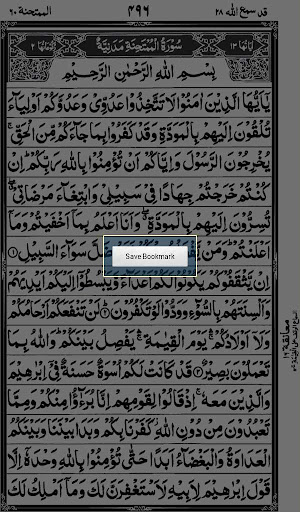 قد سمع الله ٢٨
٤٩٦
الممتحنة ٦٠
اٰيَاتُهَا ١٣
سُوْرَةُ الْمُمْتَحِنَةِ مَدَنِيَّةٌ
رُكُوْعَاتُهَا ٢
بِسْمِ اللّٰهِ الرَّحْمٰنِ الرَّحِيْمِ
يٰۤاَيُّهَا الَّذِيْنَ اٰمَنُوْا لَا تَتَّخِذُوْا عَدُوِّيْ وَعَدُوَّكُمْ اَوْلِيَآءَ
تُلْقُوْنَ اِلَيْهِمْ بِالْمَوَدَّةِ وَقَدْ كَفَرُوْا بِمَا جَآءَكُمْ مِّنَ الْحَقِّ ۚ
يُخْرِجُوْنَ الرَّسُوْلَ وَاِيَّاكُمْ اَنْ تُؤْمِنُوْا بِاللّٰهِ رَبِّكُمْ ؕ اِنْ
كُنْتُمْ خَرَجْتُمْ جِهَادًا فِيْ سَبِيْلِيْ وَابْتِغَآءَ مَرْضَاتِيْ ۖ
تُسِرُّوْنَ اِلَيْهِمْ بِالْمَوَدَّةِ ۖ وَاَنَا اَعْلَمُ بِمَاۤ اَخْفَيْتُمْ وَمَاۤ
اَعْلَنْتُمْ ؕ وَمَنْ سَوَآءَ السَّبِيْلِ ①
Save Bookmark
اِنْ يَّثْقَفُوْكُمْ يَكُوْنُوْا لَكُمْ اَعْدَآءً وَّيَبْسُطُوْۤا اِلَيْكُمْ اَيْدِيَهُمْ
وَاَلْسِنَتَهُمْ بِالسُّوْٓءِ وَوَدُّوْا لَوْ تَكْفُرُوْنَ ② لَنْ تَنْفَعَكُمْ اَرْحَامُكُمْ
وَلَاۤ اَوْلَادُكُمْ ۛ يَوْمَ الْقِيٰمَةِ ۛ يَفْصِلُ بَيْنَكُمْ ؕ وَاللّٰهُ بِمَا
تَعْمَلُوْنَ بَصِيْرٌ ③ قَدْ كَانَتْ لَكُمْ اُسْوَةٌ حَسَنَةٌ فِيْۤ اِبْرٰهِيْمَ
وَالَّذِيْنَ مَعَهٗ ۚ اِذْ قَالُوْا لِقَوْمِهِمْ اِنَّا بُرَءٰٓؤُا مِنْكُمْ وَمِمَّا
تَعْبُدُوْنَ مِنْ دُوْنِ اللّٰهِ ۫ كَفَرْنَا بِكُمْ وَبَدَا بَيْنَنَا وَبَيْنَكُمُ
الْعَدَاوَةُ وَالْبَغْضَآءُ اَبَدًا حَتّٰى تُؤْمِنُوْا بِاللّٰهِ وَحْدَهٗۤ اِلَّا
قَوْلَ اِبْرٰهِيْمَ لِاَبِيْهِ لَاَسْتَغْفِرَنَّ لَكَ وَمَاۤ اَمْلِكُ لَكَ